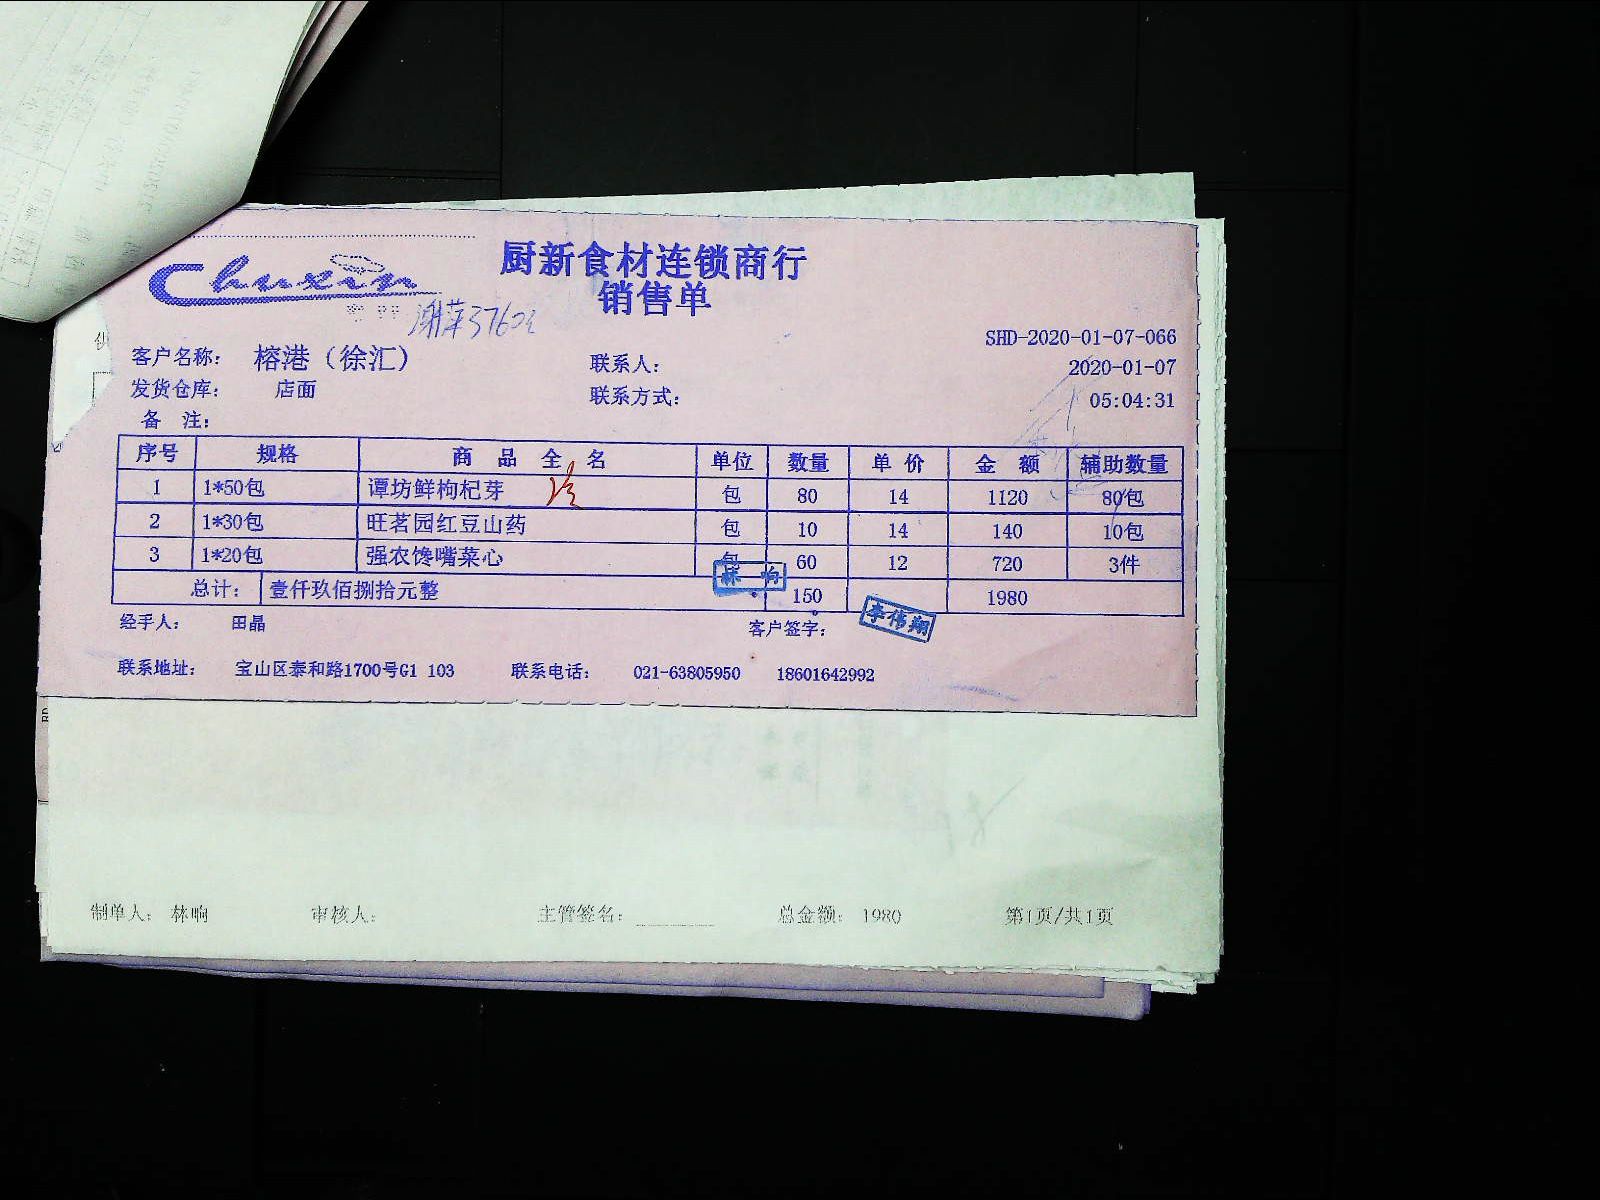 Chuxin
厨新食材连锁商行
销售单
SHD-2020-01-07-066
客户名称： 榕港（徐汇） 联系人： 2020-01-07
发货仓库： 店面 联系方式： 05:04:31
备 注：
序号 规格 商 品 全 名 单位 数量 单 价 金 额 辅助数量
1 1*50包 谭坊鲜枸杞芽 包 80 14 1120 80包
2 1*30包 旺茗园红豆山药 包 10 14 140 10包
3 1*20包 强农馋嘴菜心 包 60 12 720 3件
总计： 壹仟玖佰捌拾元整 150 1980
林 响
经手人： 田晶 客户签字： 李伟翔
联系地址： 宝山区泰和路1700号G1 103 联系电话： 021-63805950 18601642992
制单人： 林响 审核人： 主管签名： 总金额： 1980 第1页/共1页